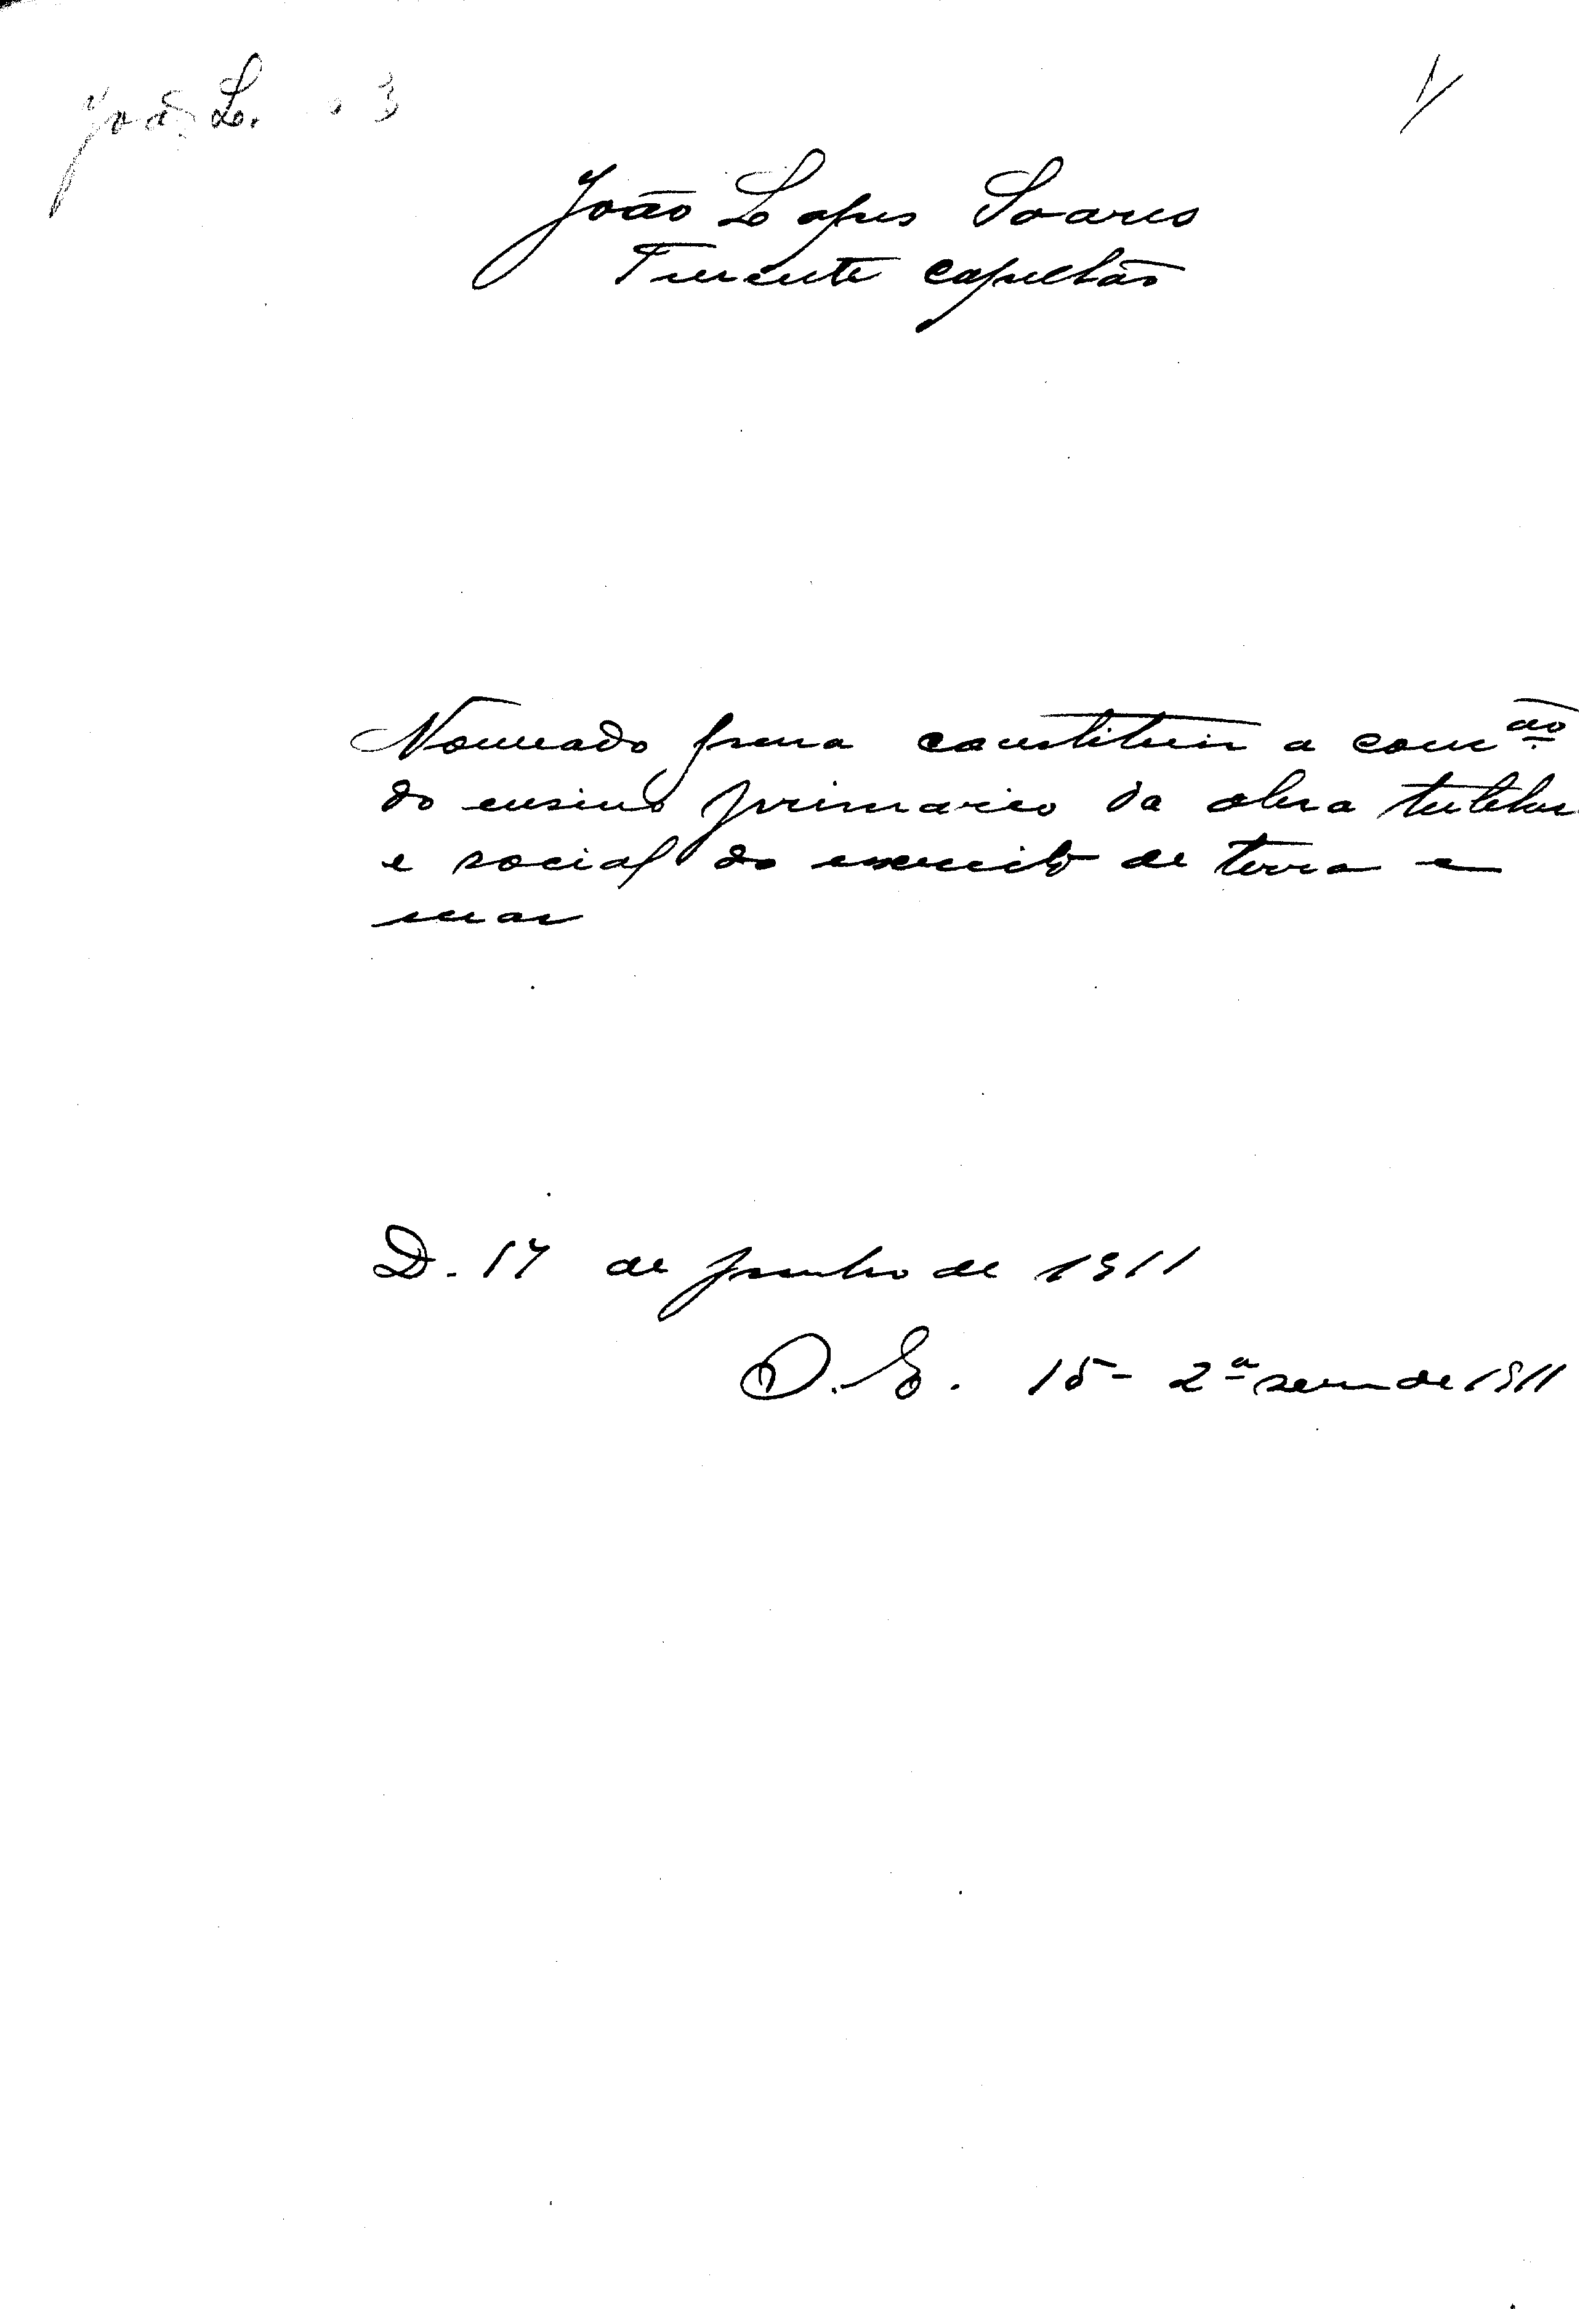 João L. 3
João Lopes Soares
Tenente capellão
Nomeado para constituir a com.ão
do ensino primario da obra tutelar
e social do exercito de terra e
mar
D. 17 de junho de 1911
O. E. 15 - 2ª sem de 1911